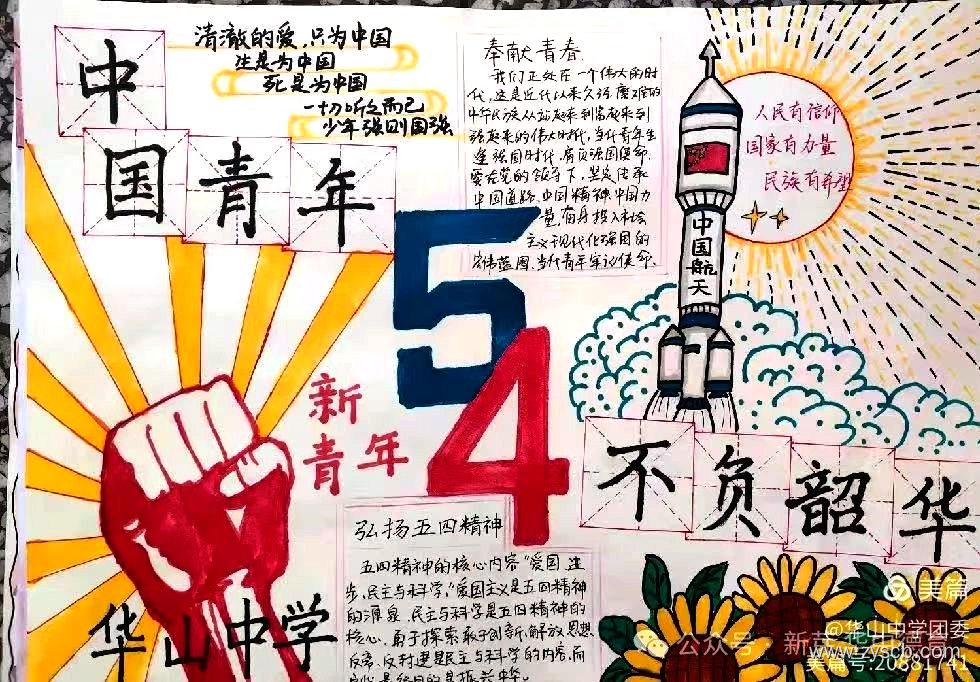 中
国青年
清澈的爱,只为中国
生是为中国
死是为中国
一切听之而已
少年强则国强
奉献青春
我们正处在一个伟大的时
代,这是近代以来久经磨难的
中华民族从站起来到富起来到
强起来的伟大时代,当代青年生
逢强国时代,肩负强国使命
要在党的领导下,坚定传承
中国道路,中国精神,中国力
量,
投入社会
主义现代化强国的
宏伟蓝图,当代青年牢记使命
人民有信仰
国家有力量
民族有希望
中国航天
54
新
青年
不负韶华
弘扬五四精神
五四精神的核心内容"爱国、进
步、民主与科学,"爱国主义是五四精神
的源泉,民主与科学是五四精神的
核心,勇于探索敢于创新,解放思想
民主与科学的内容,而
振兴中华.
华山中学
美篇
@华山中学团委
公众号·新
www.zyscb.com
美篇号:20881741